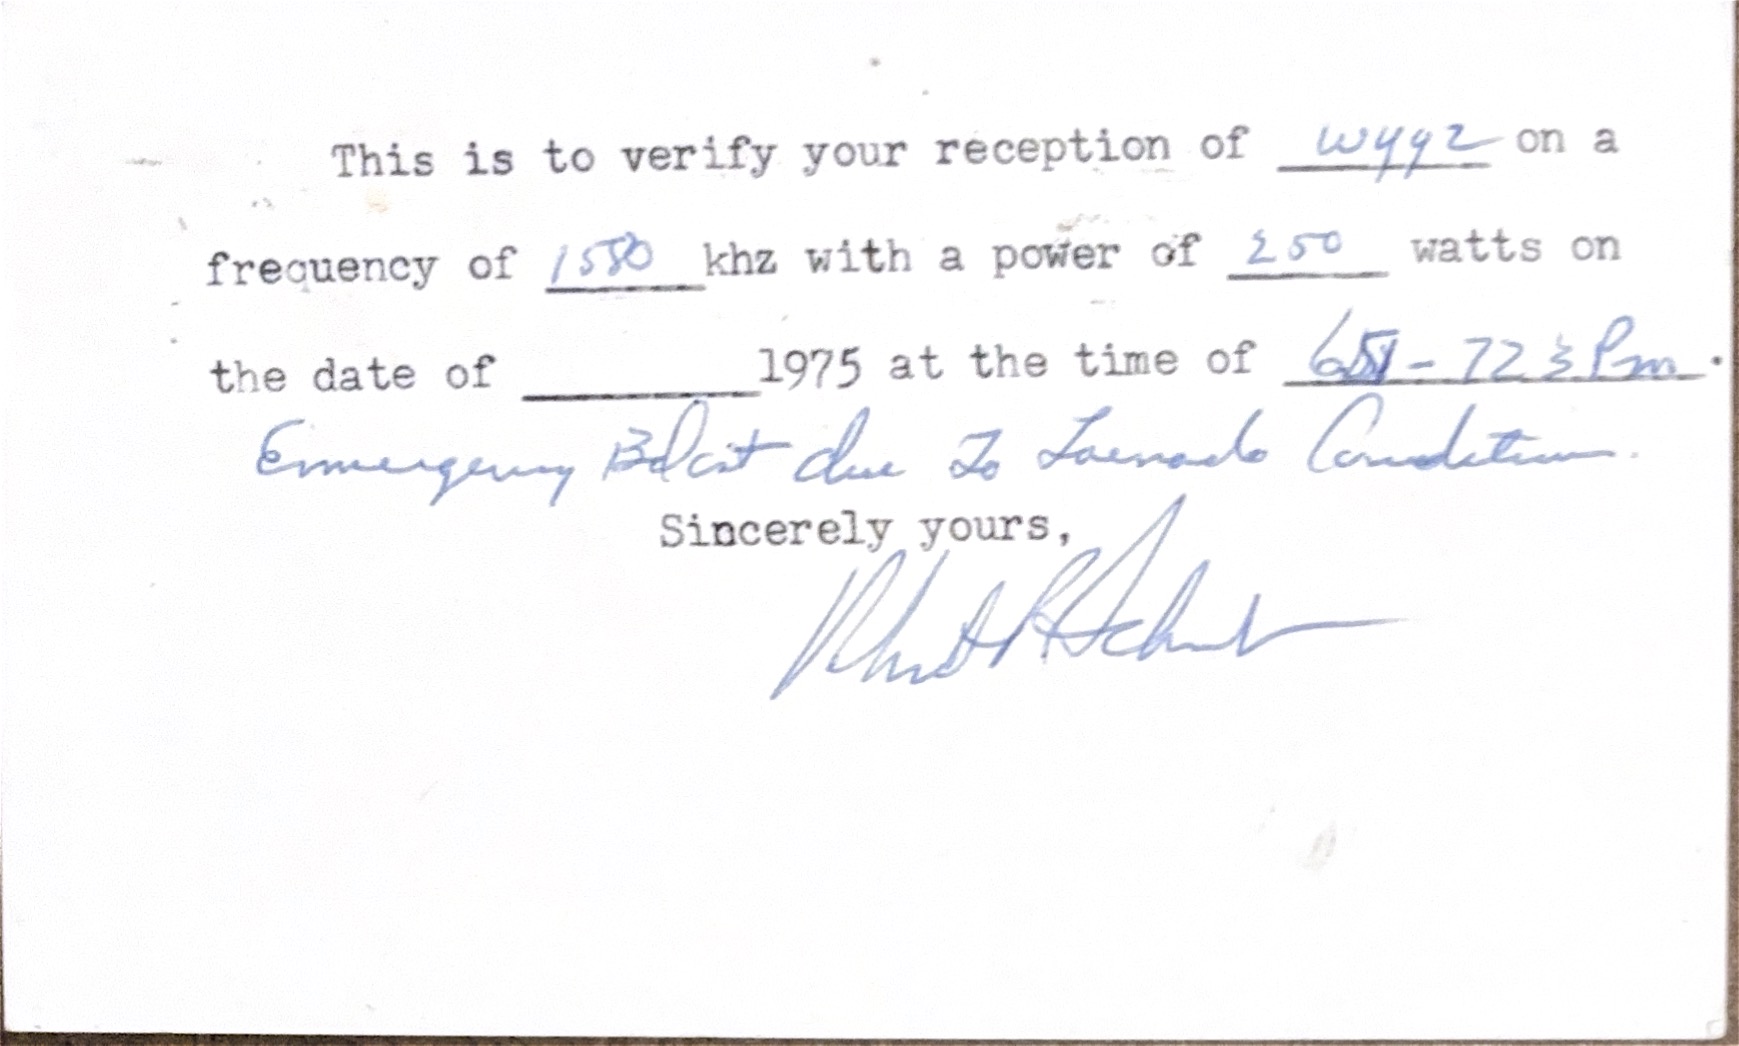 This is to verify your reception of wyyz on a
frequency of 1580 khz with a power of 250 watts on
the date of 1975 at the time of - 723 Pm.
Emmergency Bdcst due To Toernado Condition.
Sincerely yours,